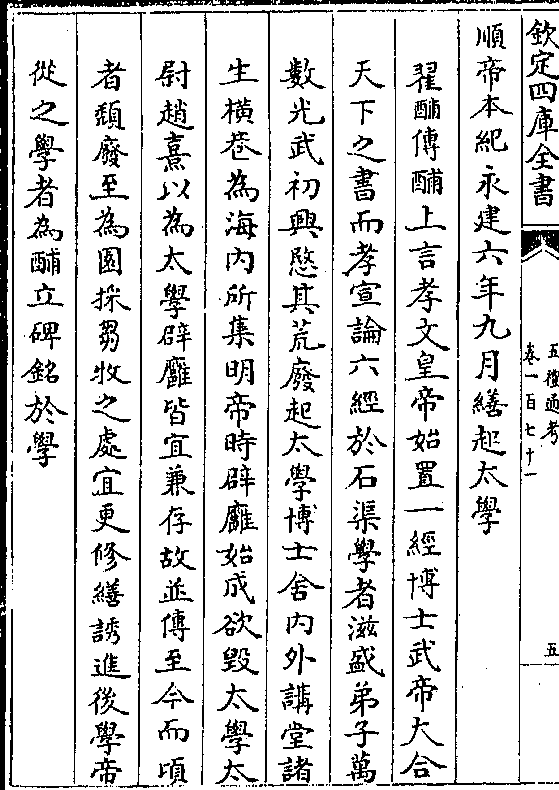 欽定四庫全書
五禮通考
卷一百七十一
五
順帝本紀永建六年九月繕起太學
翟酺傳酺上言孝文皇帝始置一經博士武帝大合
天下之書而孝宣論六經於石渠學者滋盛弟子萬
數光武初興愍其荒廢起太學博士舍內外講堂諸
生橫巷為海內所集明帝時辟廱始成欲毀太學太
尉趙熹以為太學辟廱皆宜兼存故並傳至今而頃
者頹廢至為園採芻牧之處宜更修繕誘進後學帝
從之學者為酺立碑銘於學